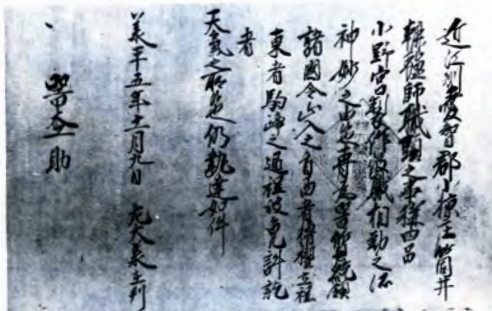 近江州愛智郡小椋庄筒井
轆轤師職頭之事称四品
小野宮製作彼職相勤之所
神妙之由候也専為器質統領
諸國令山入之旨西者櫓櫂立程
東者駒蹄之通程被免許訖
者
天氣之所候也仍執達如件
承平五年十一月九日 左大丞在判
器杢助